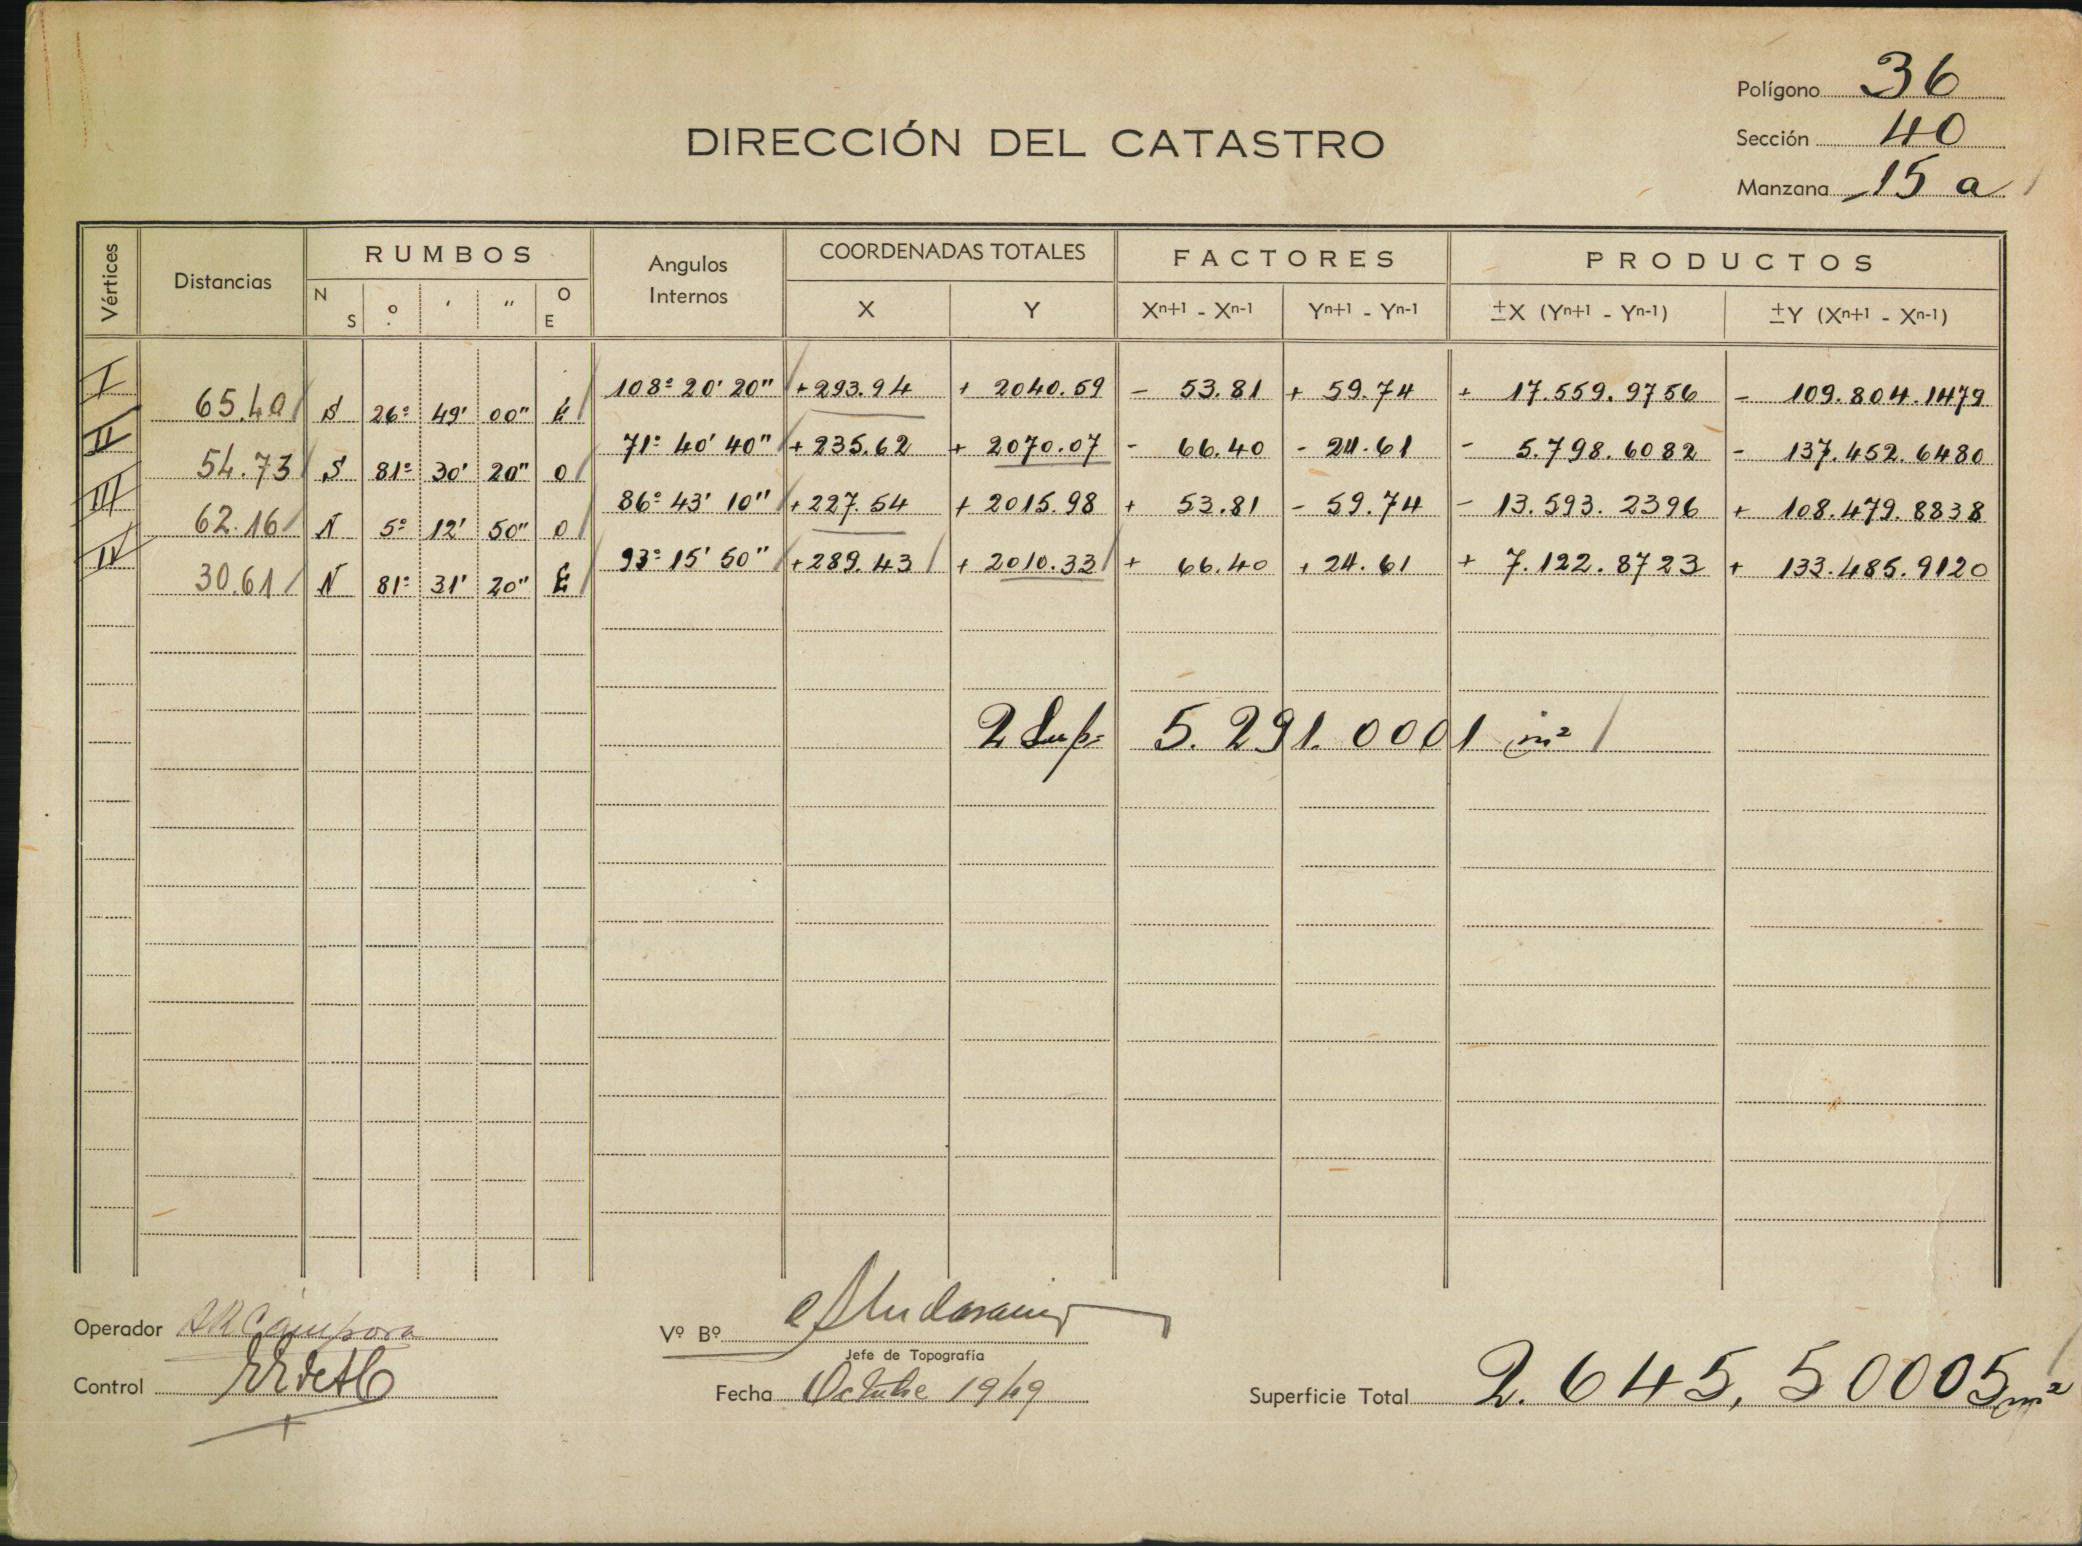 Polígono 36
DIRECCIÓN DEL CATASTRO
Sección 40
Manzana 15 a
Vértices Distancias RUMBOS Angulos Internos COORDENADAS TOTALES FACTORES PRODUCTOS
N S º ′ ″ O E X Y Xⁿ⁺¹ - Xⁿ⁻¹ Yⁿ⁺¹ - Yⁿ⁻¹ ±X (Yⁿ⁺¹ - Yⁿ⁻¹) ±Y (Xⁿ⁺¹ - Xⁿ⁻¹)
I 108º 20' 20" +293.94 + 2040.59 - 53.81 + 59.74 + 17.559.9756 - 109.804.1479
65.40 S 26º 49' 00" E
II 71º 40' 40" +235.62 + 2070.07 - 66.40 - 24.61 - 5.798.6082 - 137.452.6480
54.73 S 81º 30' 20" O
III 86º 43' 10" +227.54 + 2015.98 + 53.81 - 59.74 - 13.593.2396 + 108.479.8838
62.16 N 5º 12' 50" O
IV 93º 15' 50" +289.43 + 2010.33 + 66.40 + 24.61 + 7.122.8723 + 133.485.9120
30.61 N 81º 31' 20" E
2 Sup= 5.291.0001 m²
Operador
Vº Bº
Jefe de Topografía
Control
Fecha Octubre 1949
Superficie Total 2.645,50005 m²